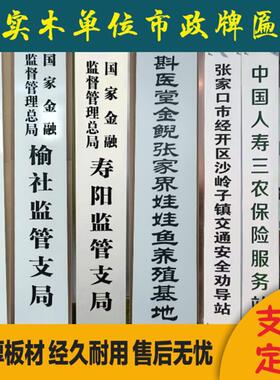 实木单位市政牌匾
国家金融
监督管理总局
榆社监管支局
国家金融
监督管理总局
寿阳监管支局
斟医堂金鲵张家界娃娃鱼养殖基地
张家口市经开区沙岭子镇交通安全劝导站
中国人寿三农保险服务站
板材 经久耐用 售后无忧
支
定